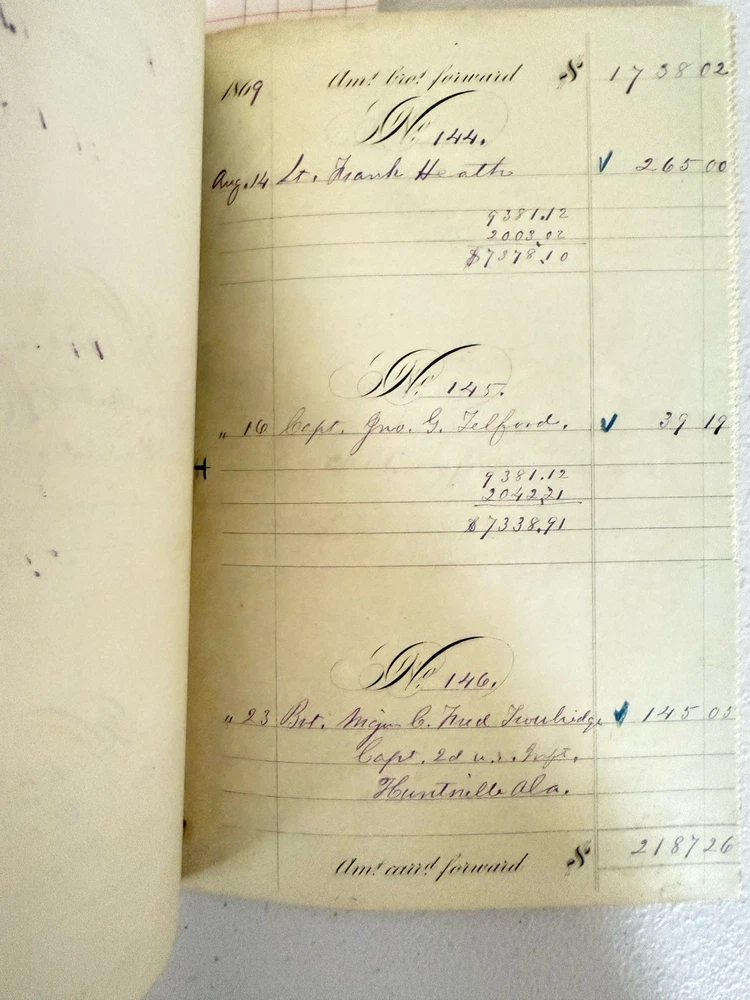 1869 Amt. brot. forward $ 1738 02
No. 144.
Aug. 14 Lt. Frank Heath ✓ 265 00
9381.12
2003.02
$7378.10
No. 145.
" 16 Capt. Jno. G. Telford. ✓ 39 19
9381.12
2042.21
$7338.91
No. 146.
" 23 Bvt. Major C. Fred Trowbridge ✓ 145 05
Capt. 2d U.S. Inft.
Huntsville Ala.
Amt. carrd. forward $ 2187 26